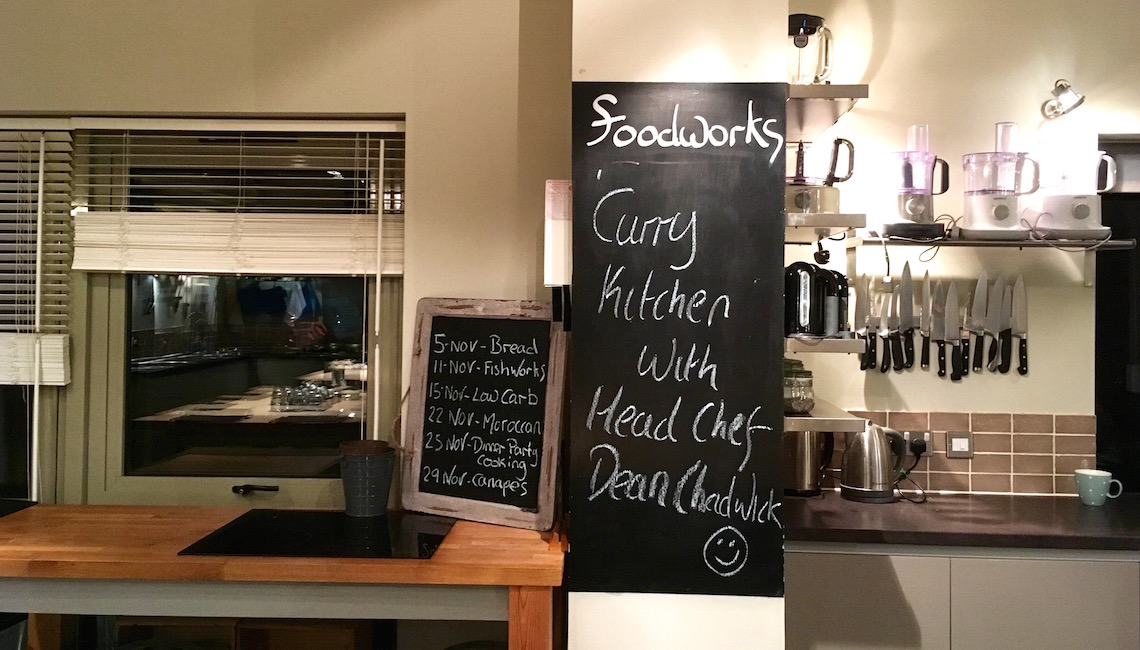 Foodworks
'Curry
Kitchen
With
Head Chef
Dean Chadwick
5-Nov-Bread
11-Nov-Fishworks
15-Nov-Low Carb
22 Nov-Moroccan
25 Nov-Dinner Party
Cooking
29 Nov-Canapés